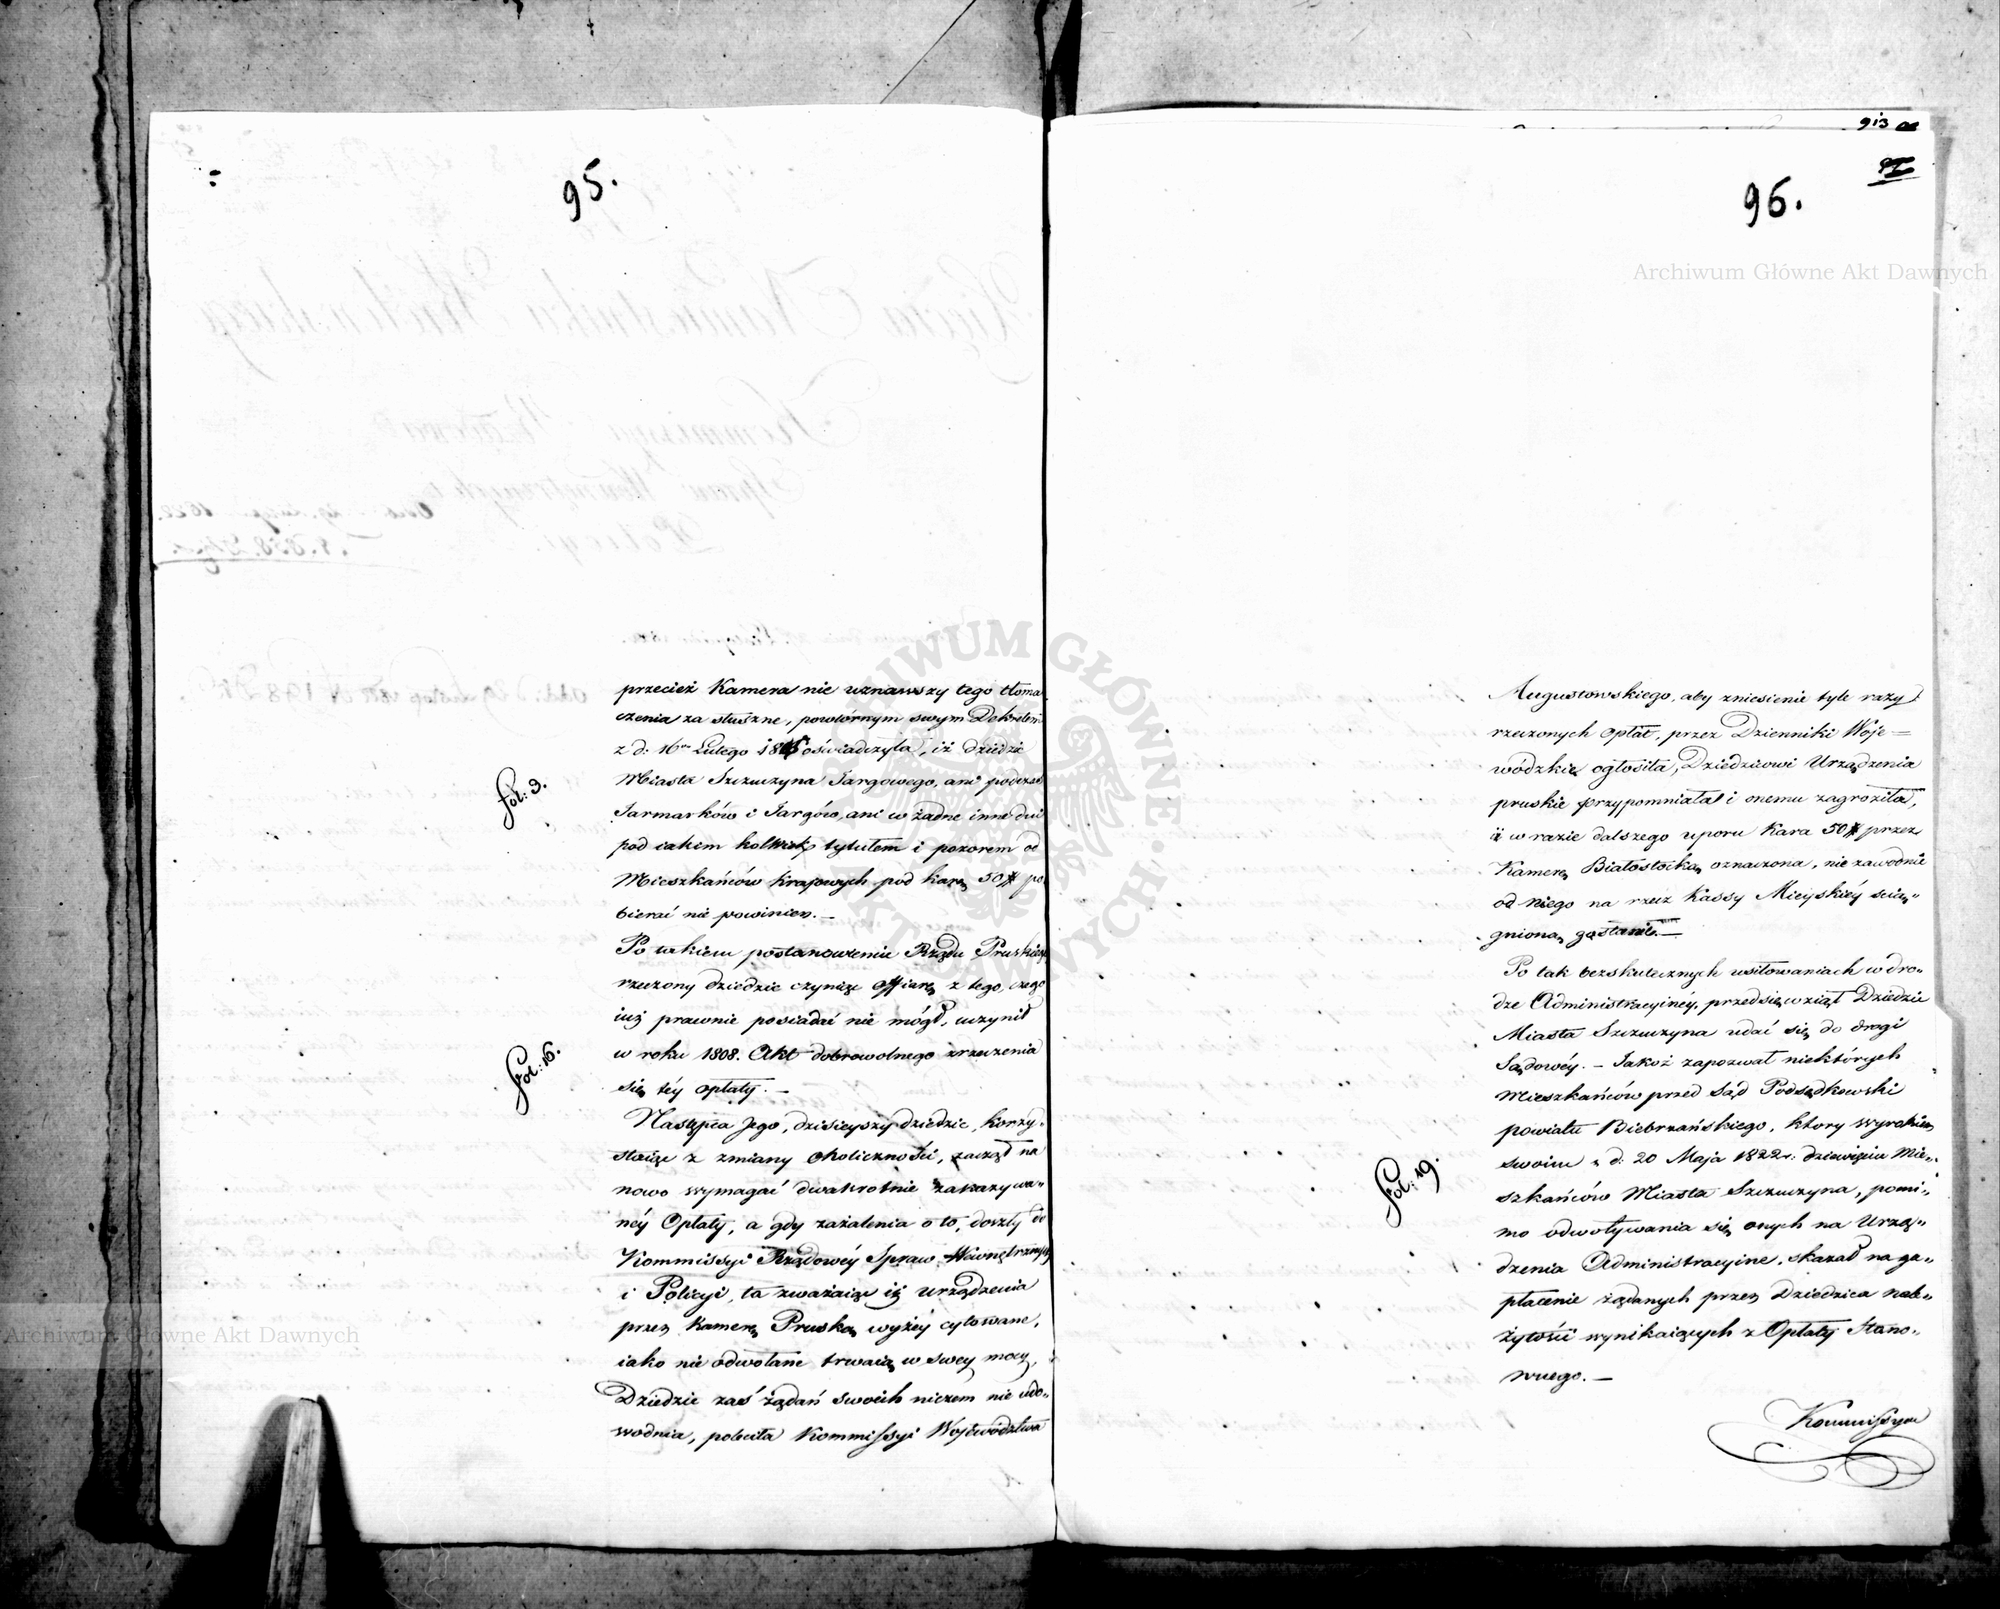 95.
przecież Kamera nie uznawszy tego tłoma
czenia za słuszne, powtórnym swym Dekretem
z d: 16 Lutego oświadczyła, iż dziedzic
Miasta Szczuczyna Targowego, ani podczas
Jarmarków i Targów, ani w żadne inne dni
pod iakim kolwiek tytułem i pozorem od
Mieszkańców krajowych pod karą 50 # po
bierać nie powinien. —
Fol: 3.
Po takiem postanowieniu Rządu Pruskiego
rzeczony dziedzic czyniąc offiarę z tego, czego
iuż prawnie posiadać nie mógł, uczynił
w roku 1808. Akt dobrowolnego zrzeczenia
się téy opłaty. —
Fol: 16.
Następca Jego, dzisieyszy dziedzic, korzy-
staiąc z zmiany okoliczności, zaczął na
nowo wymagać dwakrotnie zakazywa-
néy Opłaty, a gdy zażalenia o to, doszły do
Kommissyi Rządowéy Spraw Wewnętrznych
i Policyi, ta zważaiąc iż urządzenia
przez Kamerę Pruską wyżéy cytowane,
iako nie odwołane trwaią w swey mocy,
Dziedzic zaś żądań swoich niczem nie udo-
wodnia, poleciła Kommissyi Woiewództwa
913
96.
Augustowskiego, aby zniesienie tyle razy
rzeczonych opłat, przez Dzienniki Woje-
wódzkie ogłosiła, Dziedzicowi Urządzenia
pruskie przypomniała i onemu zagroziła,
iż w razie dalszego uporu Kara 50 # przez
Kamerę Białostocką oznaczona, nie zawodnie
od niego na rzecz Kassy Mieyskiéy ścią-
gnioną zostanie. —
Po tak bezskutecznych usiłowaniach w dro-
dze Administracyinéy, przedsięwziął Dziedzic
Miasta Szczuczyna udać się do drogi
Sądowéy. — Jakoż zapozwał niektórych
Mieszkańców przed Sąd Podsędkowski
powiatu Biebrzańskiego, który wyrokiem
swoim z d: 20 Maja 1822 r: dziewięciu Mie-
szkańców Miasta Szczuczyna, pomi-
mo odwoływania się onych na Urzą-
dzenia Administracyine, skazał na za-
płacenie żądanych przez Dziedzica nale-
żytości wynikaiących z Opłaty Stano-
wnego. —
Fol: 19.
Kommissya
Archiwum Główne Akt Dawnych
Archiwum Główne Akt Dawnych
ARCHIWUM GŁÓWNE AKT DAWNYCH